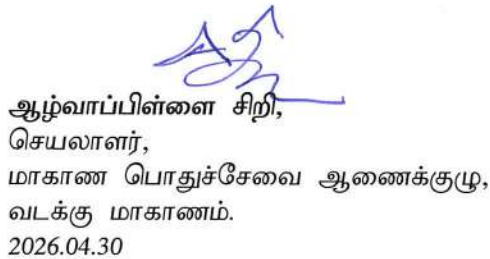 ஆழ்வாப்பிள்ளை சிறி,
செயலாளர்,
மாகாண பொதுச்சேவை ஆணைக்குழு,
வடக்கு மாகாணம்.
2026.04.30